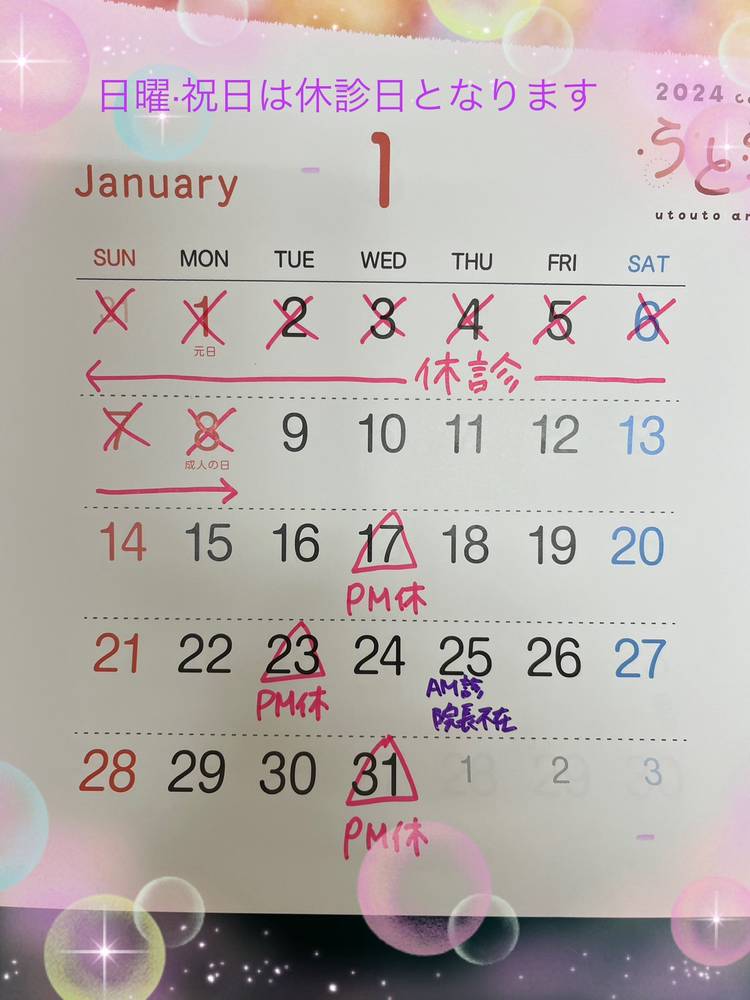 日曜·祝日は休診日となります
2024
うと
utouto
January
1
SUN MON TUE WED THU FRI SAT
31 1 2 3 4 5 6
元日
休診
7 8 9 10 11 12 13
成人の日
14 15 16 17 18 19 20
PM休
21 22 23 24 25 26 27
PM休 AM診
院長不在
28 29 30 31 1 2 3
PM休